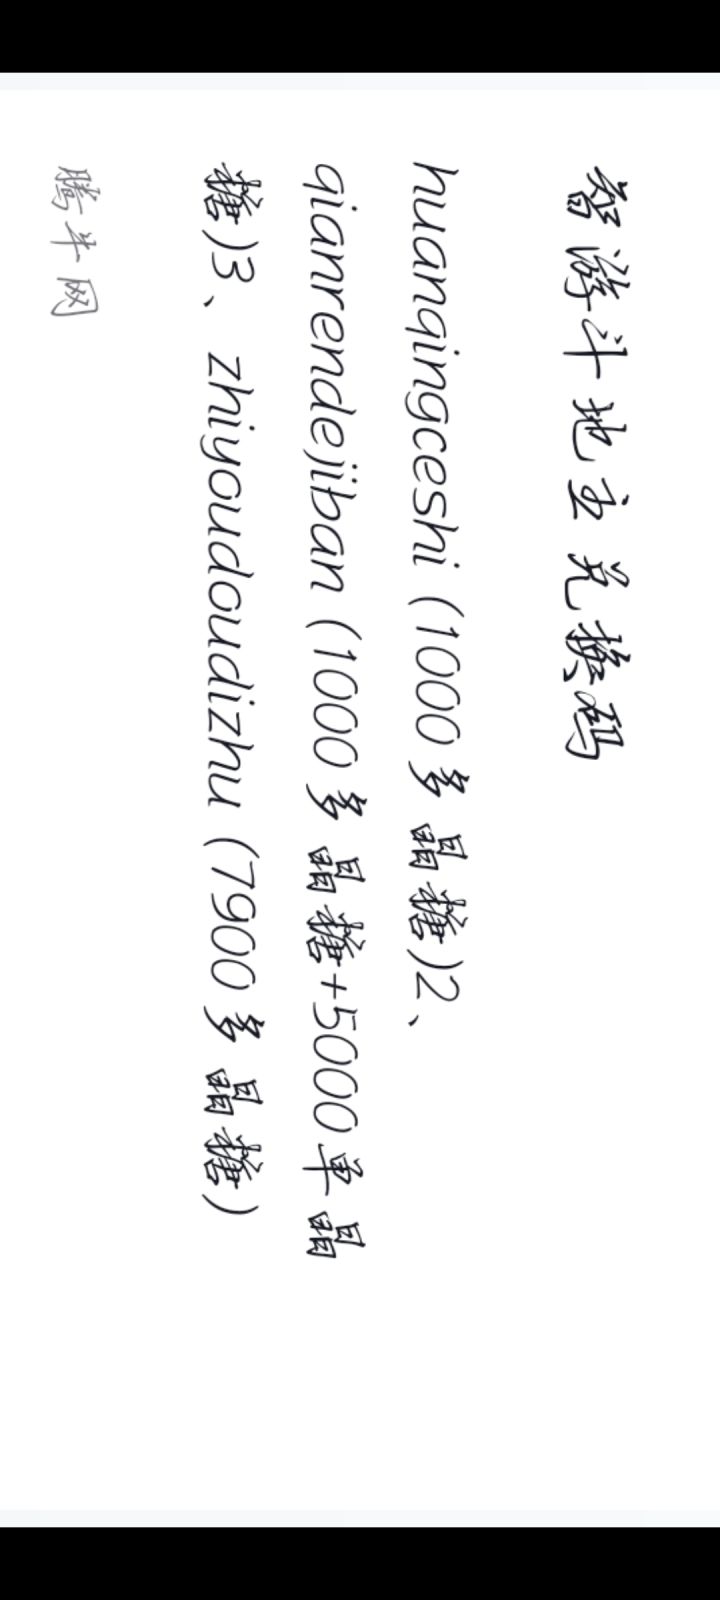 智游斗地主兑换码
huanqingceshi (1000多晶糖)2、
qianrendejiban (1000多晶糖+5000单晶
糖)3、zhiyoudoudizhu (7900多晶糖)
腾牛网